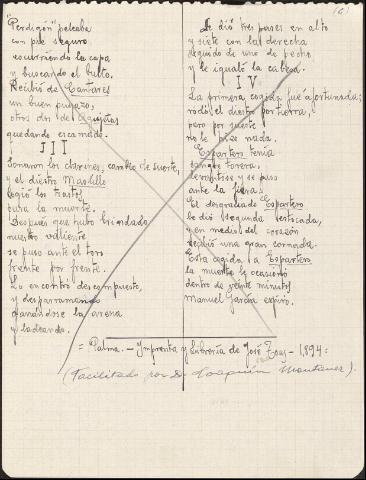 "Perdigón" peleaba
con pie seguro
escurriendo la capa
y buscando el bulto.
Recibió de Cantares
un buen puyazo,
otros dos de Agujetas
quedando escamado.
III
Sonaron los clarines, cambio de suerte,
y el diestro Maolillo
cogió los trastos
para la muerte.
Después que hubo brindado
nuestro valiente
se puso ante el toro
frente por frente.
Lo encontró descompuesto,
y desparramando
ganándose la arena
y ladeando.
(6)
Le dió tres pases en alto
y siete con la derecha
seguido de uno de pecho
y le igualó la cabeza.
IV
La primera cogida fué afortunada;
rodó el diestro por tierra,
pero por suerte
no le hizo nada.
Espartero tenía
sangre torera,
levantose y se puso
ante la fiera.
El desgraciado Espartero
le dió segunda estocada,
y en medio del corazón
recibió una gran cornada.
Esta cogida a Espartero
la muerte le ocasionó
dentro de veinte minutos
Manuel García expiró.
= Palma. - Imprenta y Librería de José Tous - 1,894 =
(Facilitado por D. Joaquín Montaner).